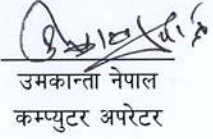 उमकान्ता नेपाल
कम्प्युटर अपरेटर